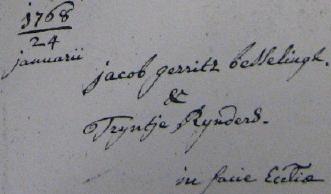 1768
24
januarii
jacob gerritz besselingh.
&
Tryntje Rynders.
in facie Eccliæ